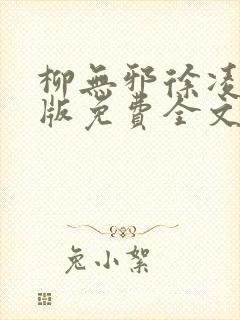 柳無邪徐凌
版免費全文
兔小絮